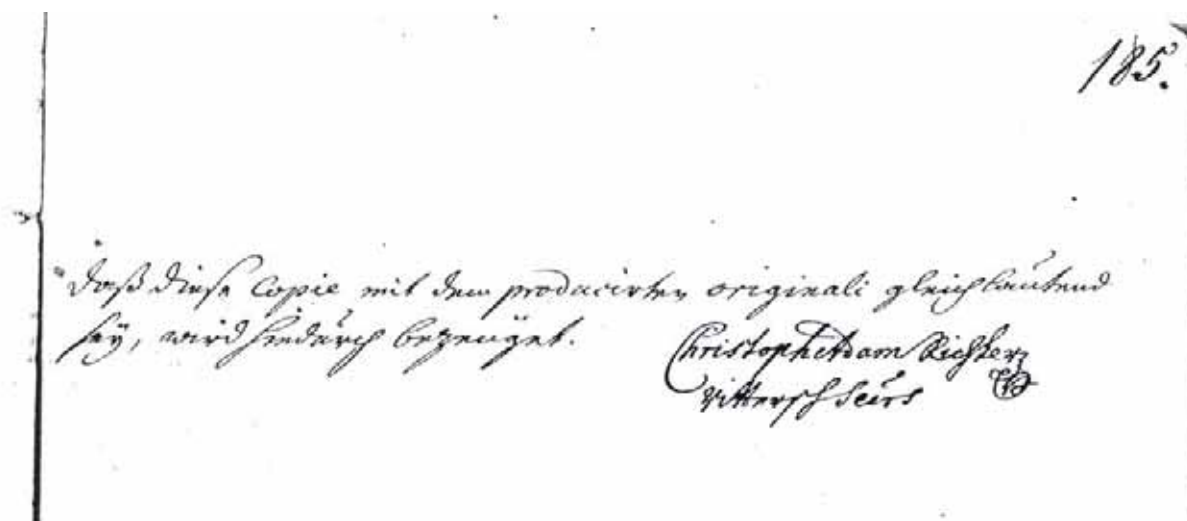 185.
Daß diese Copie mit dem producirten originali gleichlautend
seÿ, wird hiedurch bezeuget.
Christoph Adam Richter
Rittersch Secrs